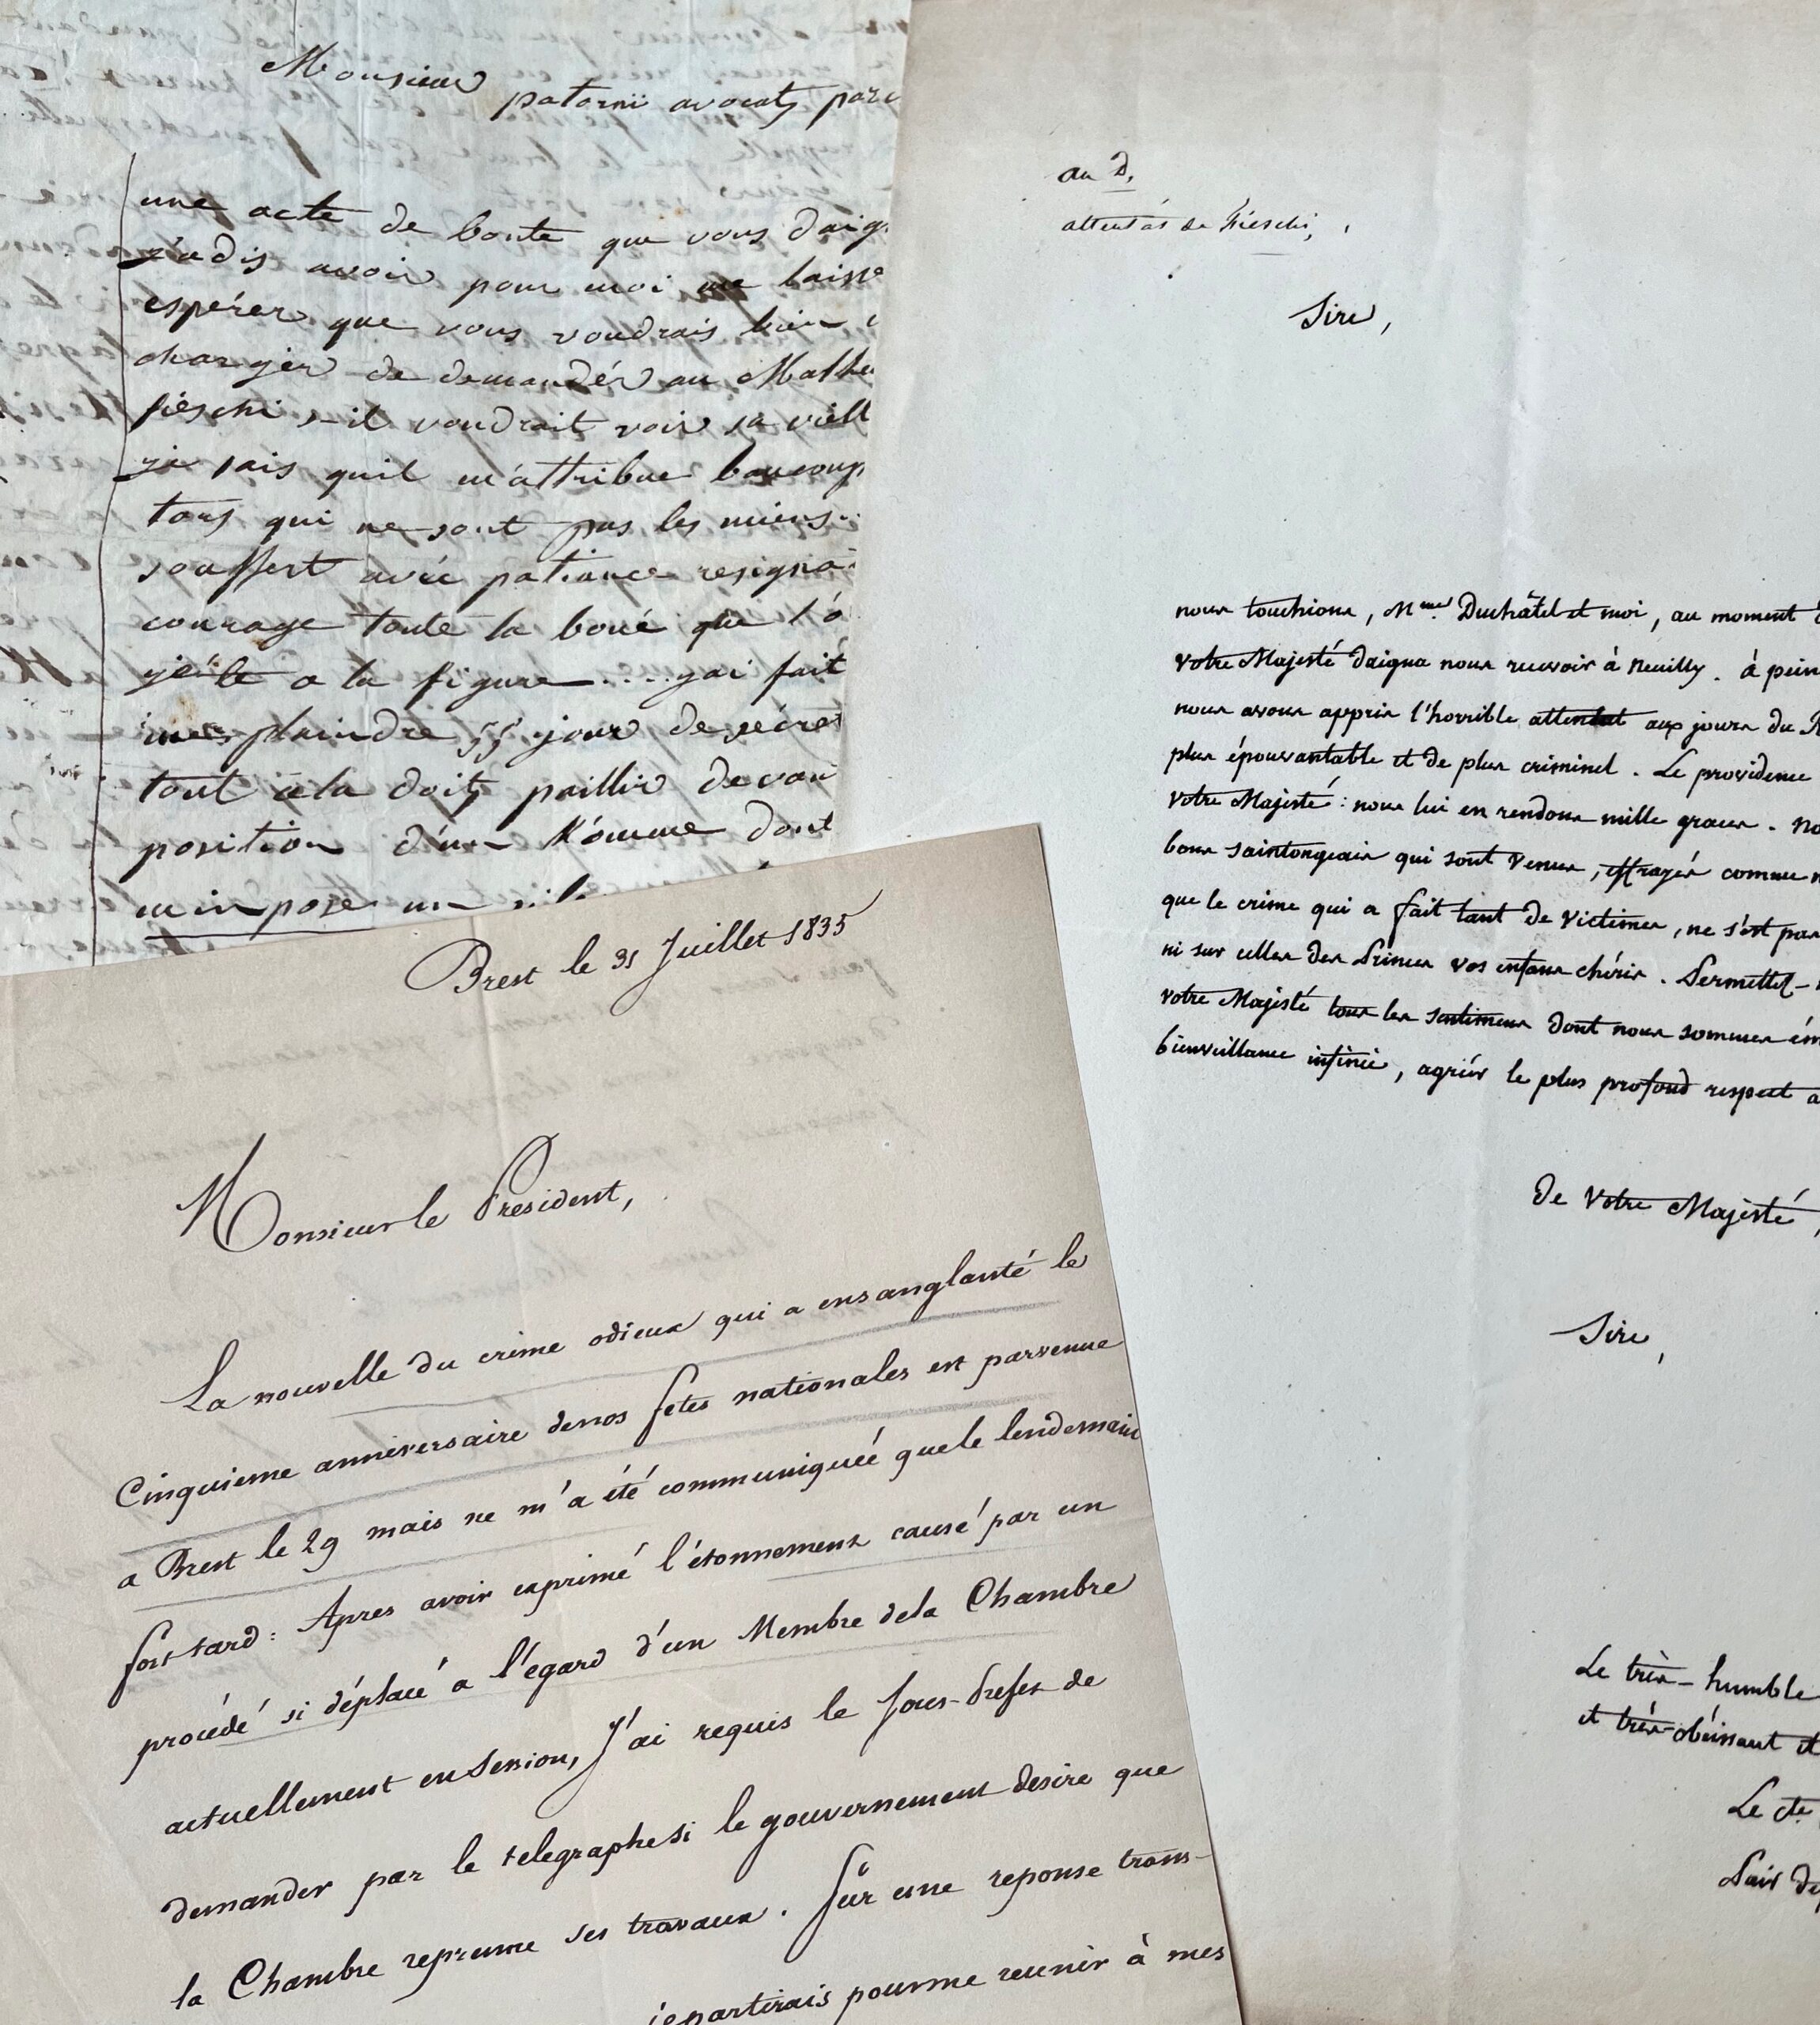 Monsieur
patornii avocats pari
une acte de bonte que vous daig
j'adis avoir pour moi me laisse
espérer que vous voudrais bien
charger de demandér au Malheu
fiéschi s-il voudrait voir sa viell
je sais quil m'attribue beaucoup
tors qui ne sont pas les miens..
souffert avéc patiance resigna
courage toute la boué que l'o
jeité a la figure .... j'ai fait
plaindre 55 jour de sécret
tout céla doits paillir devan
position d'un hómme dont
m'impose un
Brest le 31 Juillet 1835
Monsieur le President,
La nouvelle du crime odieux qui a ensanglanté le
Cinquieme anniversaire de nos fetes nationales est parvenue
a Brest le 29 mais ne m'a été communiquée que le lendemain
fort tard: Apres avoir exprimé l'étonnement causé par un
procédé si déplacé a l'égard d'un Membre de la Chambre
actuellement en Session, J'ai requis le Sous-Prefet de
demander par le telegraphe si le gouvernement desire que
la Chambre reprenne ses travaux. Sur une reponse trans-
je partirais pour me reunir à mes
au D.
attentat de Fieschi,
Sire,
nous touchions, Mme. Duchâtel et moi, au moment
Votre Majesté daigna nous recevoir à Neuilly. à pein
nous avons appris l'horrible attentat aux jours du R
plus épouvantable et de plus criminel. Le providence
Votre Majesté: nous lui en rendons mille graces. No
bons saintongeais qui sont venus, effrayés comme n
que le crime qui a fait tant de victimes, ne s'est pas
ni sur celles des Princes vos enfans chéris. Permettez-
votre Majesté tous les sentimens dont nous sommes ém
bienveillance infinie, agréer le plus profond respect a
De Votre Majesté,
Sire,
Le très-humble
et très-obéissant et
Le cte.
Pair de